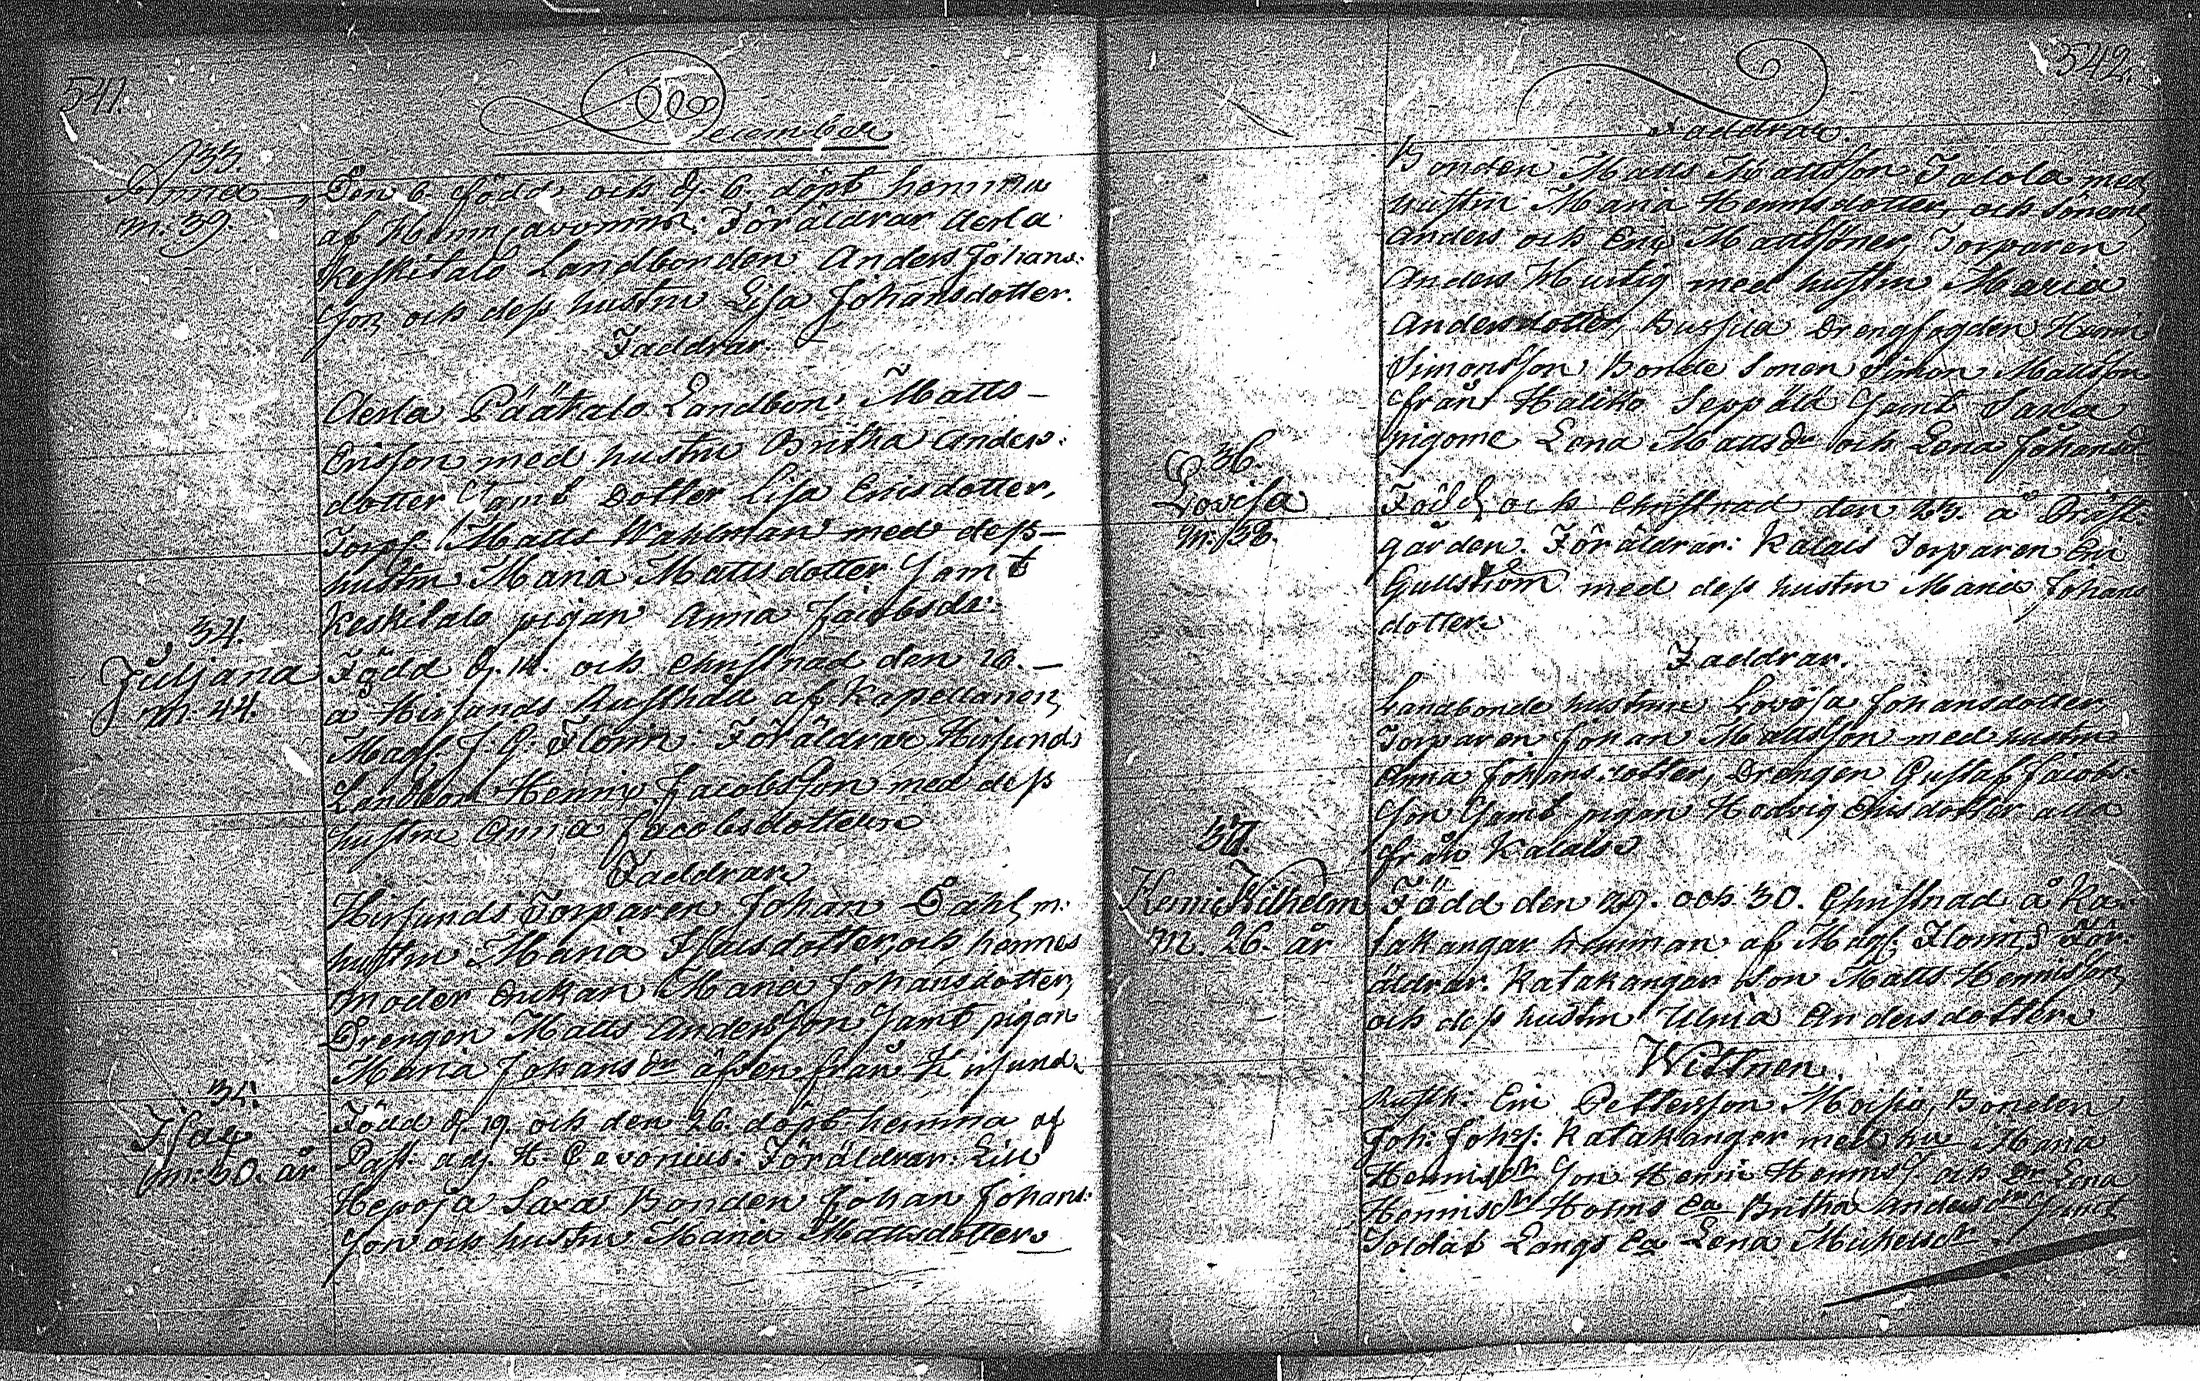 541.
December
33.
Anna
m. 39.
Den 6. född, och d. 6. döpt hemma
af Henr. Cavonius. Föräldrar Aerla
Keskitalo Landbonden Anders Johans-
son och dess hustru Lisa Johansdotter.
Faddrar
Aerla Päätalo Landbon: Matts
Ericsson med hustru Britha Anders-
dotter samt Dotter Lisa Ericsdotter,
Torp. Matts Wahlman med dess
hustru Maria Mattsdotter samt
Keskitalo pigan Anna Jacobsdr.
34.
Juljana
m. 44.
Född d. 14. och Christnad den 16.
å Hirsunds Rusthåll af Kapellanen
Mag. J. G. Florin. Föräldrar Hirsunds
Landbon Henric Jacobsson med dess
hustru Anna Jacobsdotter
Faddrar
Hirsunds Torparen Johan Dahl m:
hustru Maria Isacsdotter, och hennes
moder Enkan Maria Johansdotter,
Drengen Matts Andersson samt pigan
Maria Johansdr äfven från Hirsund.
35.
Isac
m: 30. år
Född d. 19. och den 26. döpt hemma af
Past. adj. H. Cavonius. Föräldrar: Lill
Heposa Saxa Bonden Johan Johans-
son och hustru Maria Mattsdotter
542.
Faddrar
Bonden Matts Mattsson Jalola med
hustru Maria Henricsdotter, och sönerne
Anders och Eric Mattsöner, Torparen
Anders Hurtig med hustru Maria
Andersdotter, Bussila Drengfogden Henr.
Simonsson Bonde sonen Simon Mattsson
från Halikko Seppälä samt Saxa
pigorne Lena Mattsdr och Lena Johansdr
36.
Lovisa
m. 38.
Född och Christnad den 23. å Präst-
gården. Föräldrar: Kalais Torparen Eric
Gullström med dess hustru Maria Johans
dotter
Faddrar.
Landbonde hustrun Lovisa Johansdotter,
Torparen Johan Mattsson med hustru
Anna Johansdotter, Drengen Gustaf Jacobs-
son samt pigan Hedvig Ericsdotter alla
från Kalais
37.
Henric Wilhelm
m. 26. år
Född den 29. och 30. Christnad å Ka-
takangar hemman af Mag. Florin. För-
äldrar. Katakangar Son Matts Henricsson
och dess hustru Ulrica Andersdotter
Wittnen.
Rusth: Eric Pettersson Moisio, Bonden
Joh: Johs: Katakangar med hu Maria
Henricsdr son Henric Henrics. och Dr Lena
Henricsdr Holms Ea Britha Andersdr samt
Soldat Längs Ea Lena Michelsdr